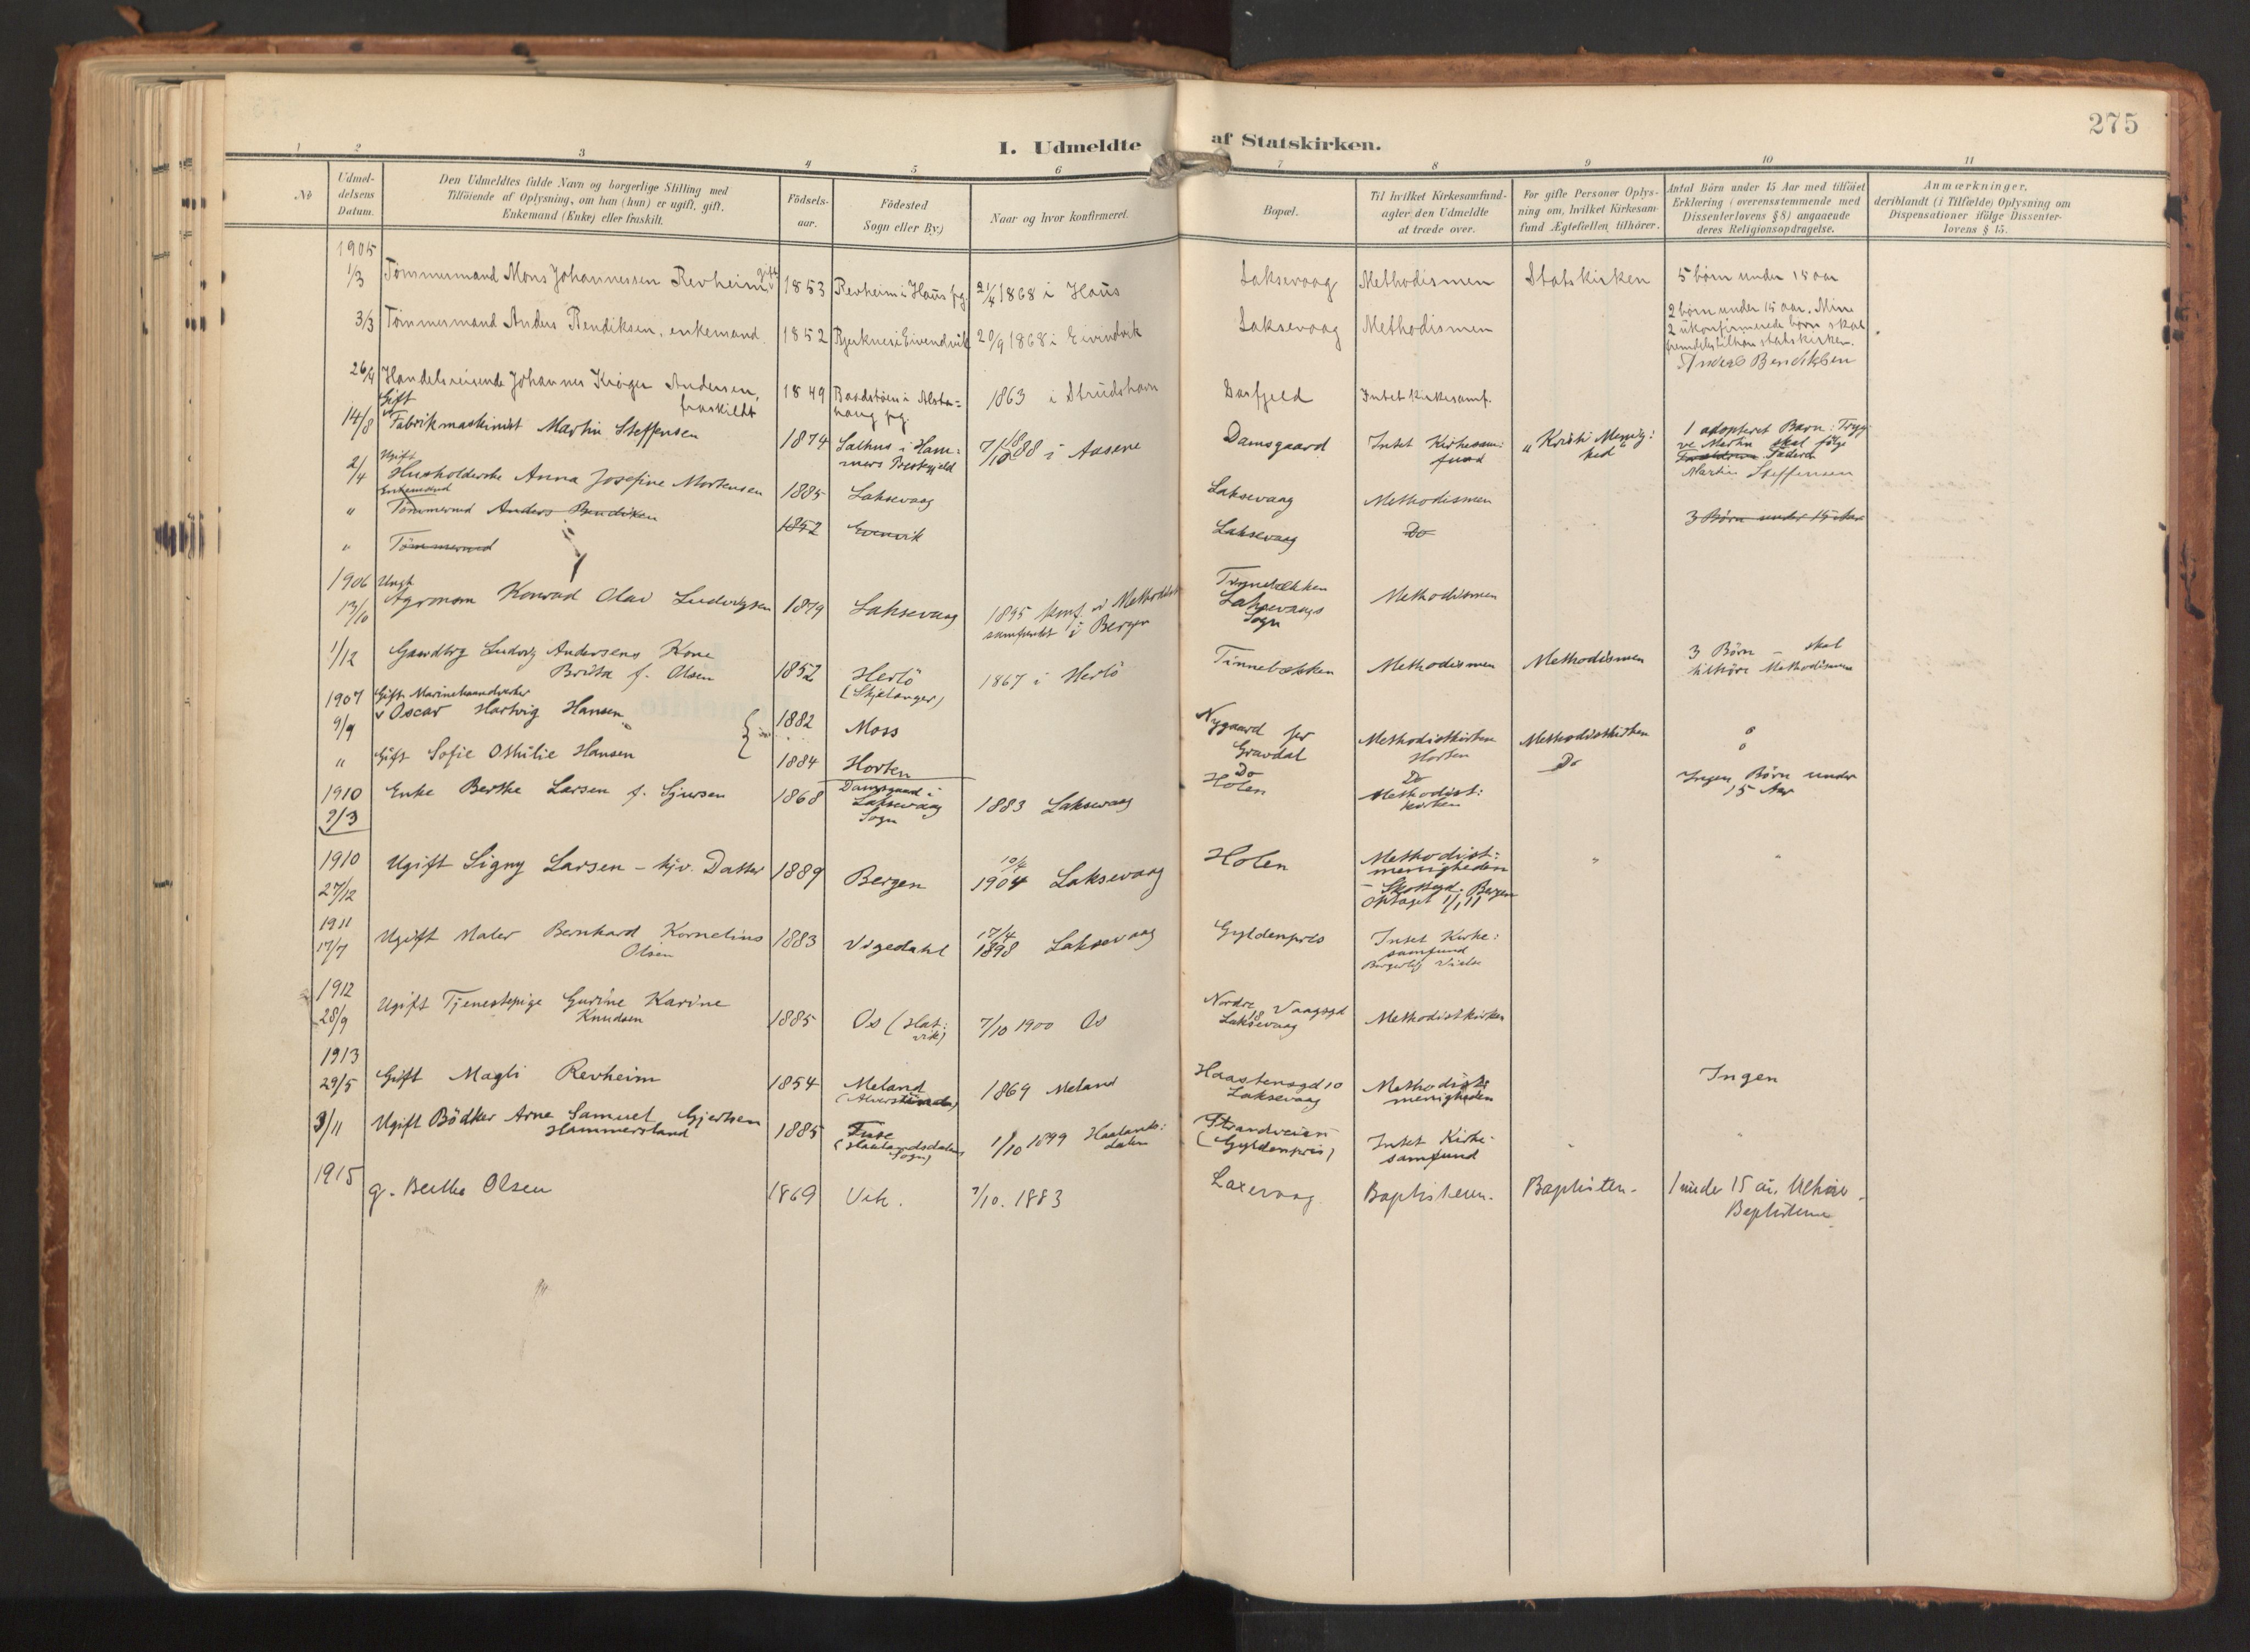 275
I. Udmeldte af Statskirken.
1 2 3 4 5 6 7 8 9 10 11
No
Udmel-
delsens
Datum.
Den Udmeldtes fulde Navn og borgerlige Stilling med
Tilföiende af Oplysning, om han (hun) er ugift, gift,
Enkemand (Enke) eller fraskilt.
Födsels-
aar.
Födested
Sogn eller By)
Naar og hvor konfirmeret.
Bopæl.
Til hvilket Kirkesamfund-
agter den Udmeldte
at træde over.
For gifte Personer Oplys-
ning om, hvilket Kirkesam-
fund Ægtefællen tilhörer.
Antal Börn under 15 Aar med tilföiet
Erklæring (overensstemmende med
Dissenterlovens § 8) angaaende
deres Religionsopdragelse.
Anmærkninger,
deriblandt (i Tilfælde) Oplysning om
Dispensationer ifölge Dissenter-
lovens § 15.
1905
1/3 Tömmermand Mons Johannessen Revheim, gift 1853 Revheim i Haus pg. 21/4 1868 i Haus Laksevaag Methodismen Statskirken 5 börn under 15 aar
3/3 Tömmermand Anders Bendiksen, enkemand. 1852 Eivendvik 20/9 1868 i Eivindvik Laksevaag Methodismen 2 börn under 15 aar. Mine
2 ukonfirmerede börn skal
fremdeles tilhøre statskirken.
Anders Bendiksen
26/4 Handelsreisende Johannes Kröger Andersen,
fraskildt 1849 i Alsta=
haug pg. 1863 i Intet kirkesamf.
Gift
14/8 Fabrikmaskinist Martin Steffensen 1874 Salhus i Ham:
mers Prestegjeld 7/10 1888 i Aasene Damsgaard Intet Kirkesam:
fund "Kristi Menig:
hed 1 adopteret Barn: Tryg
ve Martin skal følge
Faderen
Martin Steffensen
Ugift
2/4 Husholderske Anna Josefine Mortensen 1885 Laksevaag Laksevaag Methodismen
Enkemand
" Tömmermd Anders Bendiksen 1852 Evenvik Laksevaag Do 3 Börn under 15 Aar
" Tömmermd
1906 Ungk
13/10 Agronom Konrad Olav Ludvigsen 1879 Laksevaag 1895 konf. i Methodist
samfundet i Bergen Tinnebækken
Laksevaags
Sogn Methodismen
1/12 Gaardbrg Ludvig Andersens Kone
Brita f. Olsen 1852 Herlö
(Skjelanger) 1867 i Herlö Tinnebækken Methodismen Methodismen 3 Börn - skal
tilhöre Methodismen
1907 Gift Marinehaandverker
9/9 Oscar Hartvig Hansen 1882 Moss Nygaard per
Gravdal Methodistkirken
Horten Methodistkirken 0
" Gift Sofie Othilie Hansen 1884 Horten Do Do Do 0
1910
2/3 Enke Berthe Larsen f. Sjursen 1868 Damsgaard i
Laksevaag
Sogn 1883 Laksevaag Holen Methodist:
kirken Ingen Börn under
15 Aar
1910
27/12 Ugift Signy Larsen - hjv. Datter 1889 Bergen 10/4
1904 Laksevaag Holen Methodist:
menigheden
- Bergen
Optaget 1/1 11 " "
1911
17/7 Ugift Maler Bernhard Kornelius
Olsen 1883 Vigedahl 17/4
1898 Laksevaag Gyldenpris Intet Kirke:
samfund
Borgerlig Vielse
1912
28/9 Ugift Tjenestepige Gurine Karine
Knudsen 1885 Os (Hat:
vik) 7/10 1900 Os Nordre Vaagsgd
18
Laksevaag Methodistkirken
1913
29/5 Gift Magli Revheim 1854 Meland 1869 Meland Haastensgd 10
Laksevaag Methodist
menigheden Ingen
3/11 Ugift Bödker Arne Samuel Gjertsen
Hammersland 1885 Fuse
(Haalandsdalens
Sogn) 1/10 1899 Haalands:
dalen Strandveien
(Gyldenpris) Intet Kirke-
samfund " "
1915
g. Berthe Olsen 1869 Vik. 7/10. 1883 Laxevaag Baptisterne. Baptisten. 1 under 15 år. tilhører
Baptisterne.